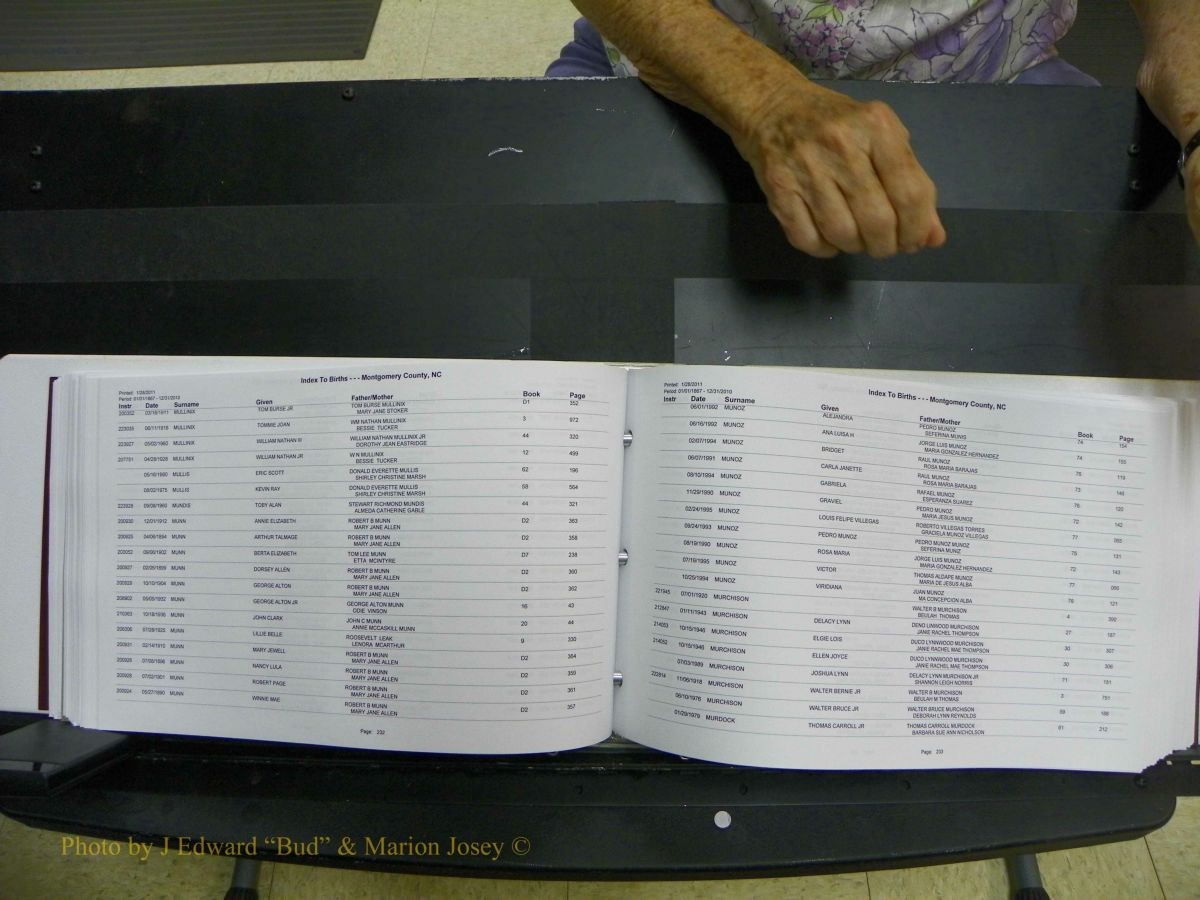 Index To Births - - - Montgomery County, NC
Printed: 1/28/2011
Period: 01/01/1867 - 12/31/2010
Instr Date Surname Given Father/Mother Book Page
200352 03/16/1911 MULLINIX TOM BURSE JR TOM BURSE MULLINIX D1 352
MARY JANE STOKER
223035 06/11/1918 MULLINIX TOMMIE JOAN WM NATHAN MULLINIX 3 972
BESSIE TUCKER
223827 05/02/1960 MULLINIX WILLIAM NATHAN III WILLIAM NATHAN MULLINIX JR 44 320
DOROTHY JEAN EASTRIDGE
207701 04/28/1928 MULLINIX WILLIAM NATHAN JR W N MULLINIX 12 499
BESSIE TUCKER
05/16/1980 MULLIS ERIC SCOTT DONALD EVERETTE MULLIS 62 196
SHIRLEY CHRISTINE MARSH
08/02/1975 MULLIS KEVIN RAY DONALD EVERETTE MULLIS 58 564
SHIRLEY CHRISTINE MARSH
223928 09/08/1960 MUNDIS TOBY ALAN STEWART RICHMOND MUNDIS 44 321
ALMEDA CATHERINE GABLE
200930 12/01/1912 MUNN ANNIE ELIZABETH ROBERT B MUNN D2 363
MARY JANE ALLEN
200925 04/06/1894 MUNN ARTHUR TALMAGE ROBERT B MUNN D2 358
MARY JANE ALLEN
203052 09/06/1902 MUNN BERTA ELIZABETH TOM LEE MUNN D7 238
ETTA MCINTYRE
200927 02/26/1899 MUNN DORSEY ALLEN ROBERT B MUNN D2 360
MARY JANE ALLEN
200929 10/10/1904 MUNN GEORGE ALTON ROBERT B MUNN D2 362
MARY JANE ALLEN
208902 05/05/1932 MUNN GEORGE ALTON JR GEORGE ALTON MUNN 16 43
ODIE VINSON
210363 10/18/1936 MUNN JOHN CLARK JOHN C MUNN 20 44
ANNIE MCCASKILL MUNN
206306 07/28/1925 MUNN LILLIE BELLE ROOSEVELT LEAK 9 330
LENORA MCARTHUR
200931 02/14/1910 MUNN MARY JEWELL ROBERT B MUNN D2 364
MARY JANE ALLEN
200926 07/05/1896 MUNN NANCY LULA ROBERT B MUNN D2 359
MARY JANE ALLEN
200928 07/02/1901 MUNN ROBERT PAGE ROBERT B MUNN D2 361
MARY JANE ALLEN
200924 05/27/1890 MUNN WINNIE MAE ROBERT B MUNN D2 357
MARY JANE ALLEN
Page: 232
Index To Births - - - Montgomery County, NC
Printed: 1/28/2011
Period: 01/01/1867 - 12/31/2010
Instr Date Surname Given Father/Mother Book Page
06/01/1992 MUNOZ ALEJANDRA PEDRO MUNOZ 74 154
SEFERINA MUNIS
06/16/1992 MUNOZ ANA LUISA H JORGE LUIS MUNOZ 74 155
MARIA GONZALEZ HERNANDEZ
02/07/1994 MUNOZ BRIDGET RAUL MUNOZ 76 119
ROSA MARIA BARAJAS
06/07/1991 MUNOZ CARLA JANETTE RAUL MUNOZ 73 146
ROSA MARIA BARAJAS
08/10/1994 MUNOZ GABRIELA RAFAEL MUNOZ 76 120
ESPERANZA SUAREZ
11/29/1990 MUNOZ GRAVIEL PEDRO MUNOZ 72 142
MARIA JESUS MUNOZ
02/24/1995 MUNOZ LOUIS FELIPE VILLEGAS ROBERTO VILLEGAS TORRES 77 065
GRACIELA MUNOZ VILLEGAS
09/24/1993 MUNOZ PEDRO MUNOZ PEDRO MUNOZ MUNOZ 75 131
SEFERINA MUNIZ
08/19/1990 MUNOZ ROSA MARIA JORGE LUIS MUNOZ 72 143
MARIA GONZALEZ HERNANDEZ
07/19/1995 MUNOZ VICTOR THOMAS ALDAPE MUNOZ 77 066
MARIA DE JESUS ALBA
10/25/1994 MUNOZ VIRIDIANA JUAN MUNOZ 76 121
MA CONCEPCION ALBA
221945 07/01/1920 MURCHISON WALTER B MURCHISON 4 392
BEULAH THOMAS
212847 01/11/1943 MURCHISON DELACY LYNN DENO LINWOOD MURCHISON 27 187
JANIE RACHEL THOMPSON
214053 10/15/1946 MURCHISON ELGIE LOIS DUCO LYNNWOOD MURCHISON 30 307
JANIE RACHEL MAE THOMPSON
214052 10/15/1946 MURCHISON ELLEN JOYCE DUCO LYNNWOOD MURCHISON 30 306
JANIE RACHEL MAE THOMPSON
07/03/1989 MURCHISON JOSHUA LYNN DELACY LYNN MURCHISON JR 71 181
SHANNON LEIGH NORRIS
222814 11/06/1918 MURCHISON WALTER BERNIE JR WALTER B MURCHISON 3 751
BEULAH M THOMAS
06/10/1976 MURCHISON WALTER BRUCE JR WALTER BRUCE MURCHISON 59 188
DEBORAH LYNN REYNOLDS
01/20/1979 MURDOCK THOMAS CARROLL JR THOMAS CARROLL MURDOCK 61 212
BARBARA SUE ANN NICHOLSON
Page: 233
Photo by J Edward “Bud” & Marion Josey ©